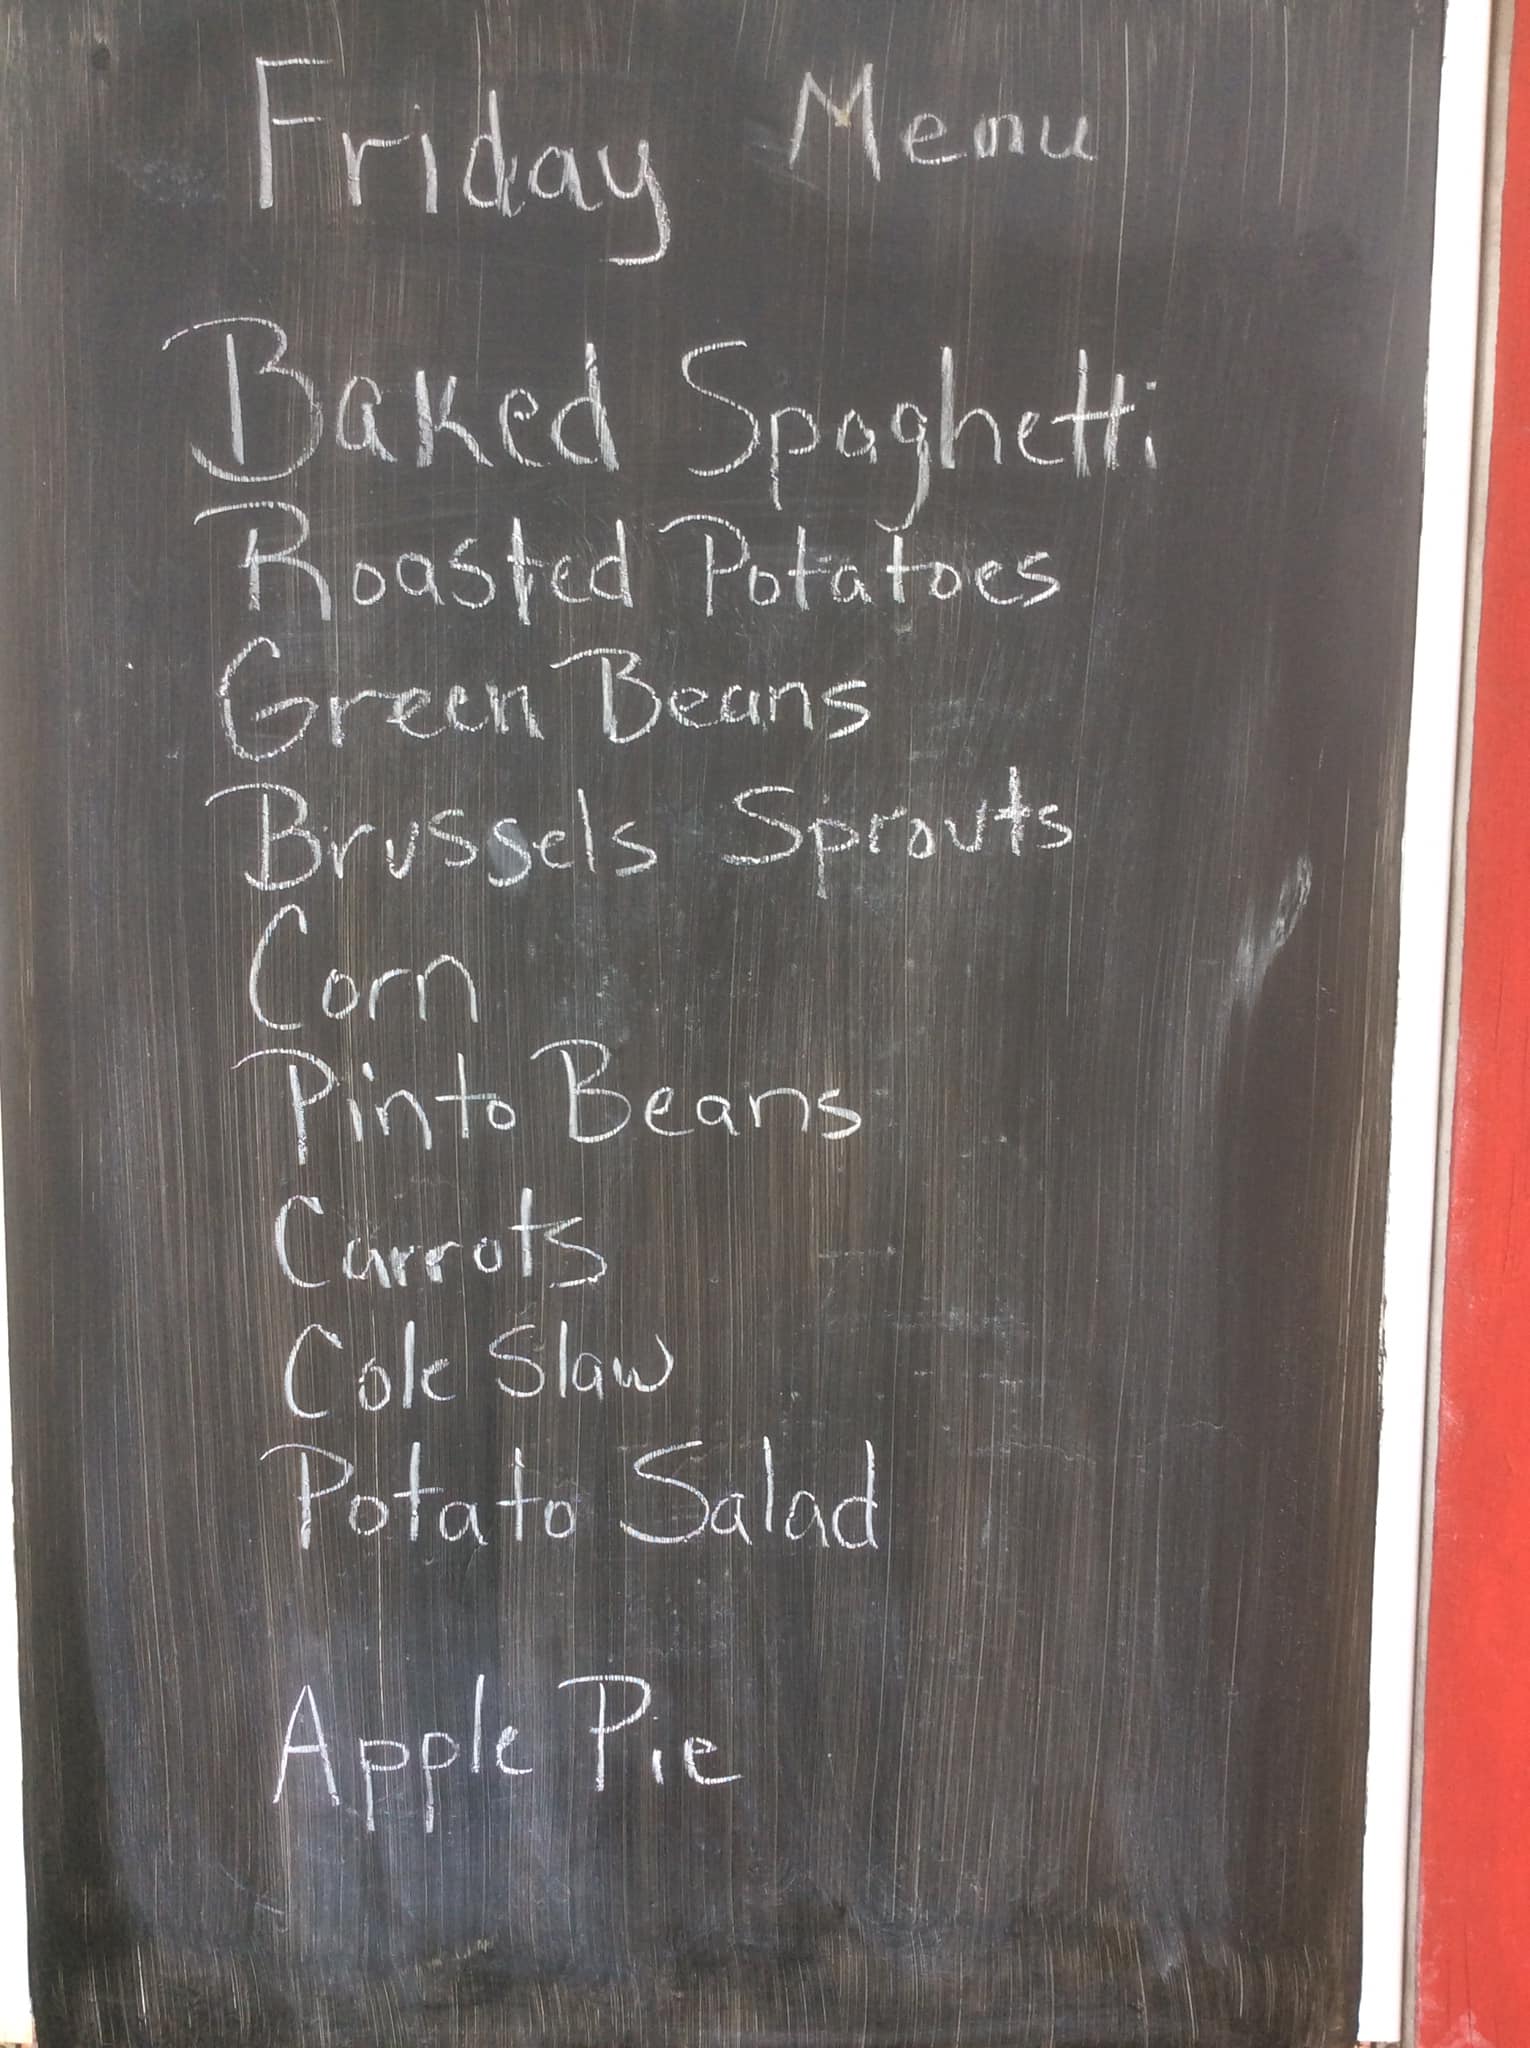 Friday Menu
Baked Spaghetti
Roasted Potatoes
Green Beans
Brussels Sprouts
Corn
Pinto Beans
Carrots
Cole Slaw
Potato Salad
Apple Pie